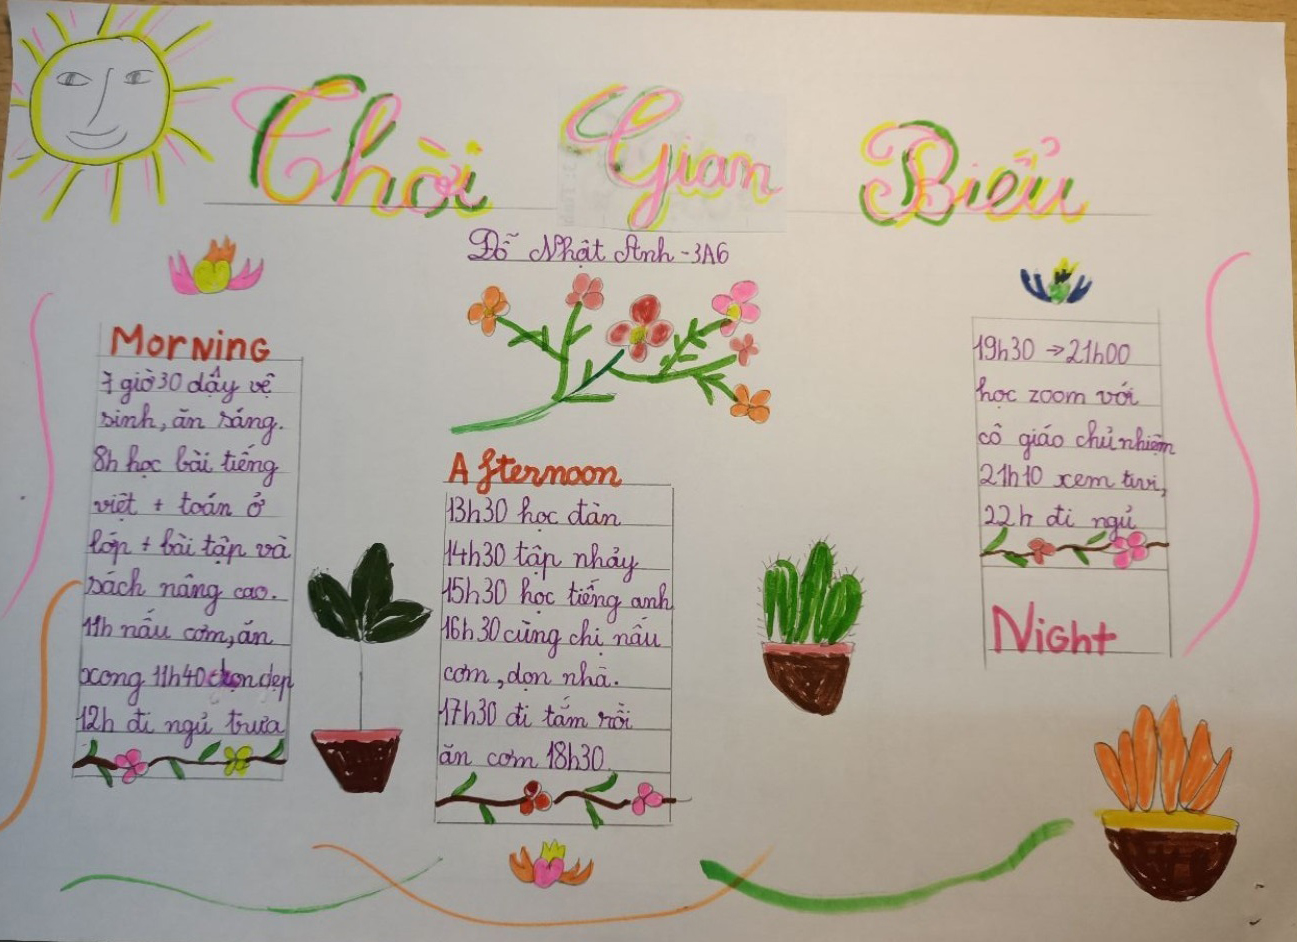 Thời Gian Biểu
Đỗ Nhật Anh - 3A6
Morning
7 giờ 30 dậy vệ
sinh, ăn sáng.
8h học bài tiếng
việt + toán ở
lớp + bài tập và
sách nâng cao.
11h nấu cơm, ăn
xong 11h40 dọn dẹp
12h đi ngủ trưa
Afternoon
13h30 học đàn
14h30 tập nhảy
15h30 học tiếng anh
16h30 cùng chị nấu
cơm, dọn nhà.
17h30 đi tắm rồi
ăn cơm 18h30.
19h30 → 21h00
học zoom với
cô giáo chủ nhiệm
21h10 xem tivi,
22h đi ngủ
Night